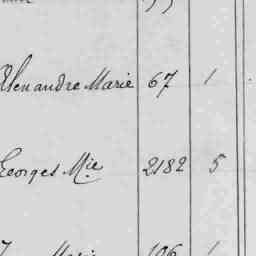 Alexandre Marie 67 1
Georges Mie 2182 5
Marie 196 1